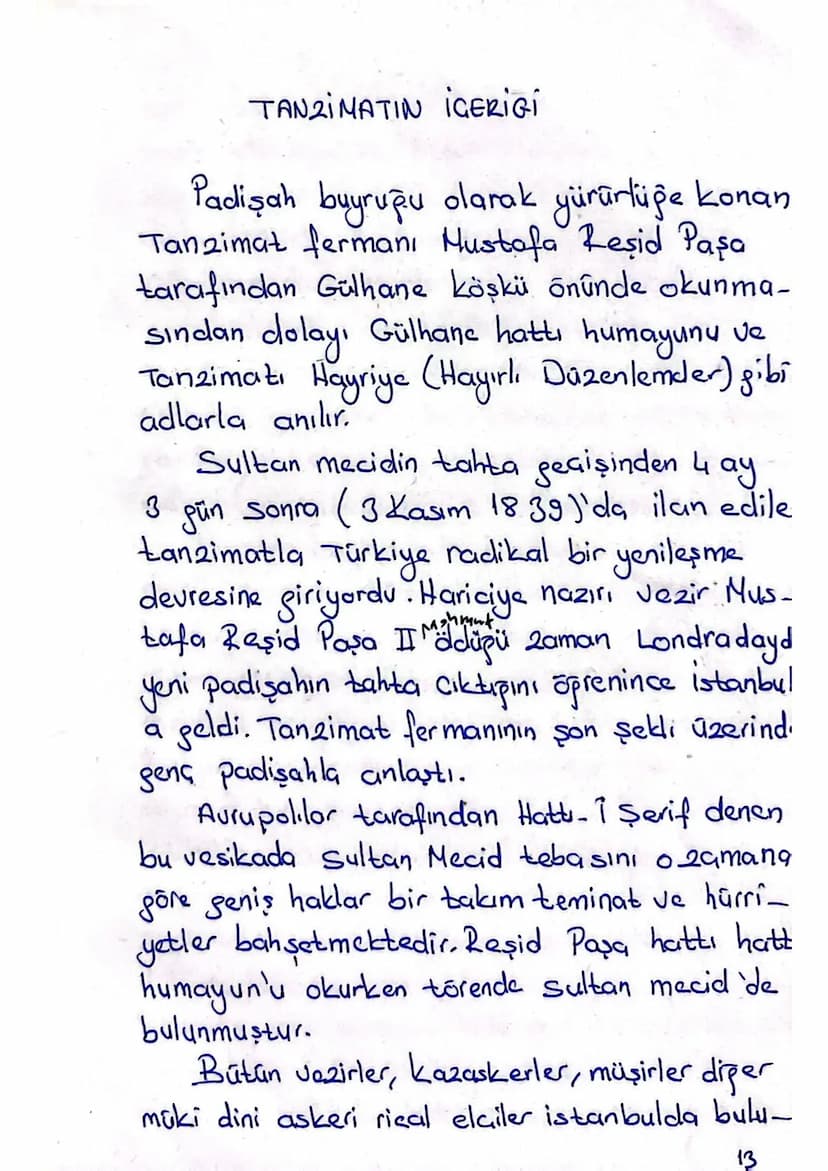 TANZİMATIN İÇERİĞİ
Padişah buyruğu olarak yürürlüğe konan
Tanzimat fermanı Mustafa Reşid Paşa
tarafından Gülhane köşkü önünde okunma-
sından dolayı Gülhane hattı humayunu ve
Tanzimatı Hayriye (Hayırlı Düzenlemeler) gibi
adlarla anılır.
Sultan mecidin tahta geçişinden 4 ay
3 gün sonra (3 Kasım 1839)'da ilan edile
tanzimatla Türkiye radikal bir yenileşme
devresine giriyordu. Hariciye nazırı vezir Mus-
tafa Reşid Paşa II Mahmut öldüğü zaman Londradayd
yeni padişahın tahta çıktığını öğrenince istanbul
a geldi. Tanzimat fermanının son şekli üzerind
genç padişahla anlaştı.
Avrupalılar tarafından Hattı-î Şerif denen
bu vesikada Sultan Mecid tebasını o zamana
göre geniş haklar bir takım teminat ve hürri-
yetler bahşetmektedir. Reşid Paşa hattı hatt
humayun'u okurken törende sultan mecid'de
bulunmuştur.
Bütün vezirler, kazaskerler, müşirler diğer
mülki dini askeri rical elçiler istanbulda bulu-
13